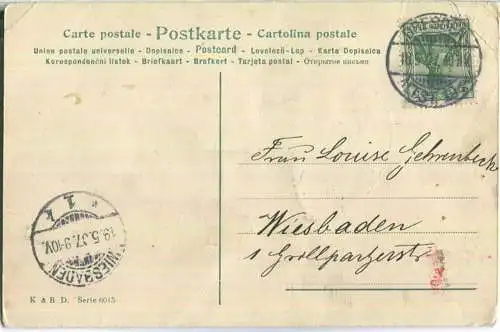 Carte postale - Postkarte - Cartolina postale
Union postale universelle - Dopisnice - Postcard - Levelezö-Lap - Karta Dopisnica
Korespondenční lístek - Briefkaart - Brefkort - Tarjeta postal - Открытое письмо
Frau Louise Gehrenbeck
Wiesbaden
1 Grillparzerstr
* 1 k
19.5.07. 9-10V.
WIESBADEN
K & B D. Serie 6015